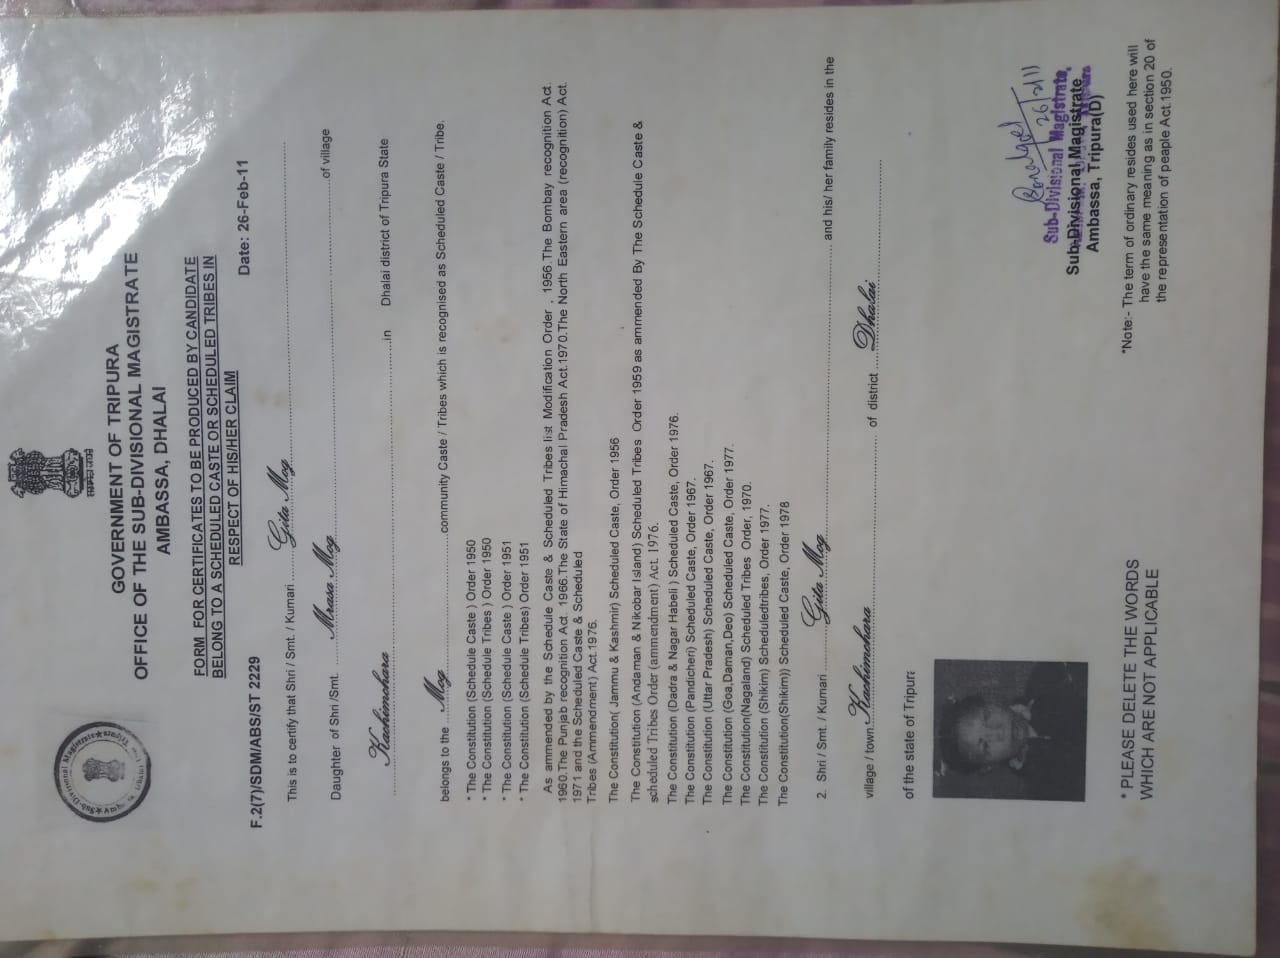 सत्यमेव जयते
GOVERNMENT OF TRIPURA
OFFICE OF THE SUB-DIVISIONAL MAGISTRATE
AMBASSA, DHALAI
FORM FOR CERTIFICATES TO BE PRODUCED BY CANDIDATE
BELONG TO A SCHEDULED CASTE OR SCHEDULED TRIBES IN
RESPECT OF HIS/HER CLAIM
F.2(7)/SDM/ABS/ST 2229 Date: 26-Feb-11
This is to certify that Shri / Smt. / Kumari Gita Mog
Daughter of Shri /Smt. Mrasa Mog of village
Kachimchara in Dhalai district of Tripura State
belongs to the Mog community Caste / Tribes which is recognised as Scheduled Caste / Tribe.
* The Constitution (Schedule Caste ) Order 1950
* The Constitution (Schedule Tribes ) Order 1950
* The Constitution (Schedule Caste ) Order 1951
* The Constitution (Schedule Tribes) Order 1951
As ammended by the Schedule Caste & Scheduled Tribes list Modification Order , 1956.The Bombay recognition Act.
1960.The Punjab recognition Act. 1966.The State of Himachal Pradesh Act.1970.The North Eastern area (recognition) Act.
1971 and the Scheduled Caste & Scheduled
Tribes (Ammendment) Act.1976.
The Constitution( Jammu & Kashmir) Scheduled Caste, Order 1956
The Constitution (Andaman & Nikobar Island) Scheduled Tribes Order 1959 as ammended By The Schedule Caste &
scheduled Tribes Order (ammendment) Act. 1976.
The Constitution (Dadra & Nagar Habeli ) Scheduled Caste, Order 1976.
The Constitution (Pandicheri) Scheduled Caste, Order 1967.
The Constitution (Uttar Pradesh) Scheduled Caste, Order 1967.
The Constitution (Goa,Daman,Deo) Scheduled Caste, Order 1977.
The Constitution(Nagaland) Scheduled Tribes Order, 1970.
The Constitution (Shikim) Scheduledtribes, Order 1977.
The Constitution(Shikim)) Scheduled Caste, Order 1978
2. Shri / Smt. / Kumari Gita Mog and his/ her family resides in the
village / town Kachimchara of district Dhalai
of the state of Tripura
26/2/11
Sub-Divisional Magistrate,
Sub-Divisional Magistrate
Ambassa, Tripura(D)
* PLEASE DELETE THE WORDS
WHICH ARE NOT APPLICABLE
*Note:- The term of ordinary resides used here will
have the same meaning as in section 20 of
the representation of peaple Act.1950.